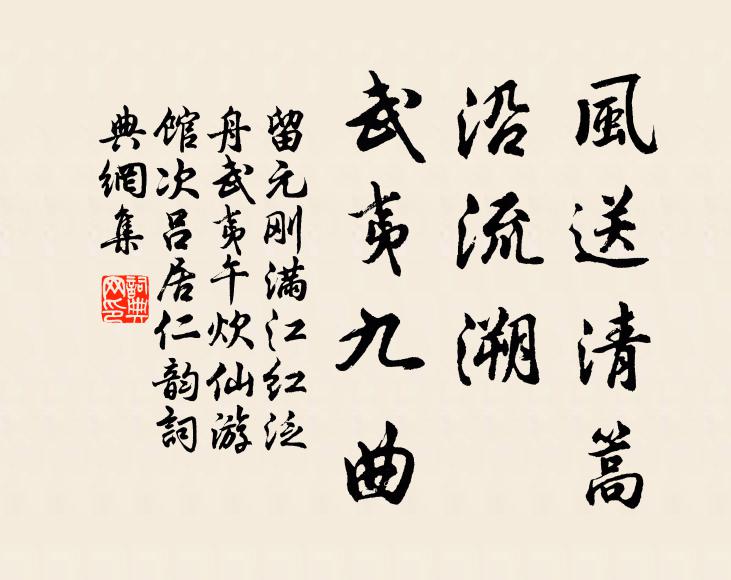 風送清篙
沿流溯
武夷九曲
留元刚滿江红泛
舟武夷午炊仙游
馆次吕居仁韵詞
典網集
詞典
网印